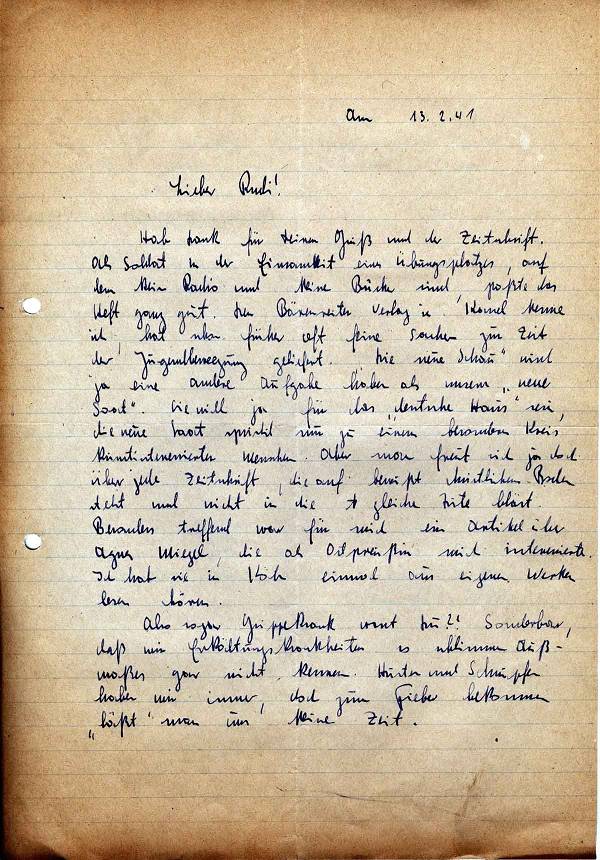 Am 13.2.41
Lieber Rudi!
Hab Dank für Deinen Gruß und der Zeitschrift.
Als Soldat in der Einsamkeit eines Übungsplatzes, auf
dem kein Radio und keine Bücher sind, paßte das
Heft ganz gut. Den Bärenreiter Verlag in Kassel kenne
ich, hat schon früher oft feine Sachen zur Zeit
der Jugendbewegung geliefert. "Die neue Schau" wird
ja eine andere Aufgabe haben als unsere "neue
Saat". Sie will ja für das "deutsche Haus" sein,
die neue Saat spricht nur zu einem besonderen Kreis
kunstinteressierter Menschen. Aber man freut sich ja doch
über jede Zeitschrift, die auf bewußt christlichem Boden
steht und nicht in die gleiche Tute bläst.
Besonders treffend war für mich ein Artikel über
Agnes Miegel, die als Ostpreußin mich interessierte.
Ich hab sie in Köln einmal aus eigenen Werken
lesen hören.
Also sogar Grippekrank warst Du?! Sonderbar,
daß wir Erkältungskrankheiten schlimmen Auß-
maßes gar nicht kennen. Husten und Schnupfen
haben wir immer, doch zum Fieber bekommen
"läßt" man uns keine Zeit.